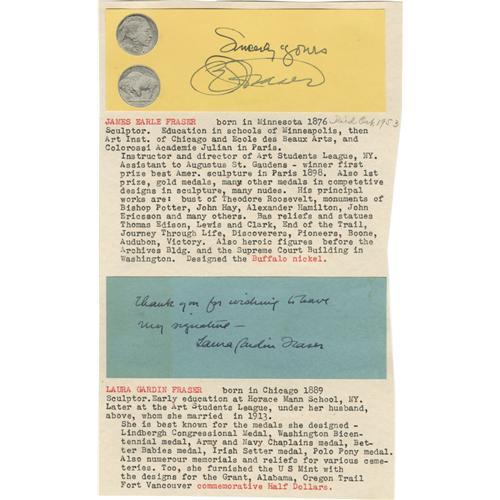 Sincerely yours
JE Fraser
JAMES EARLE FRASER born in Minnesota 1876 Died Oct 1953
Sculptor. Education in schools of Minneapolis, then
Art Inst. of Chicago and Ecole des Beaux Arts, and
Colorossi Academie Julian in Paris.
Instructor and director of Art Students League, NY.
Assistant to Augustus St. Gaudens - winner first
prize best Amer. sculpture in Paris 1898. Also 1st
prize, gold medals, many other medals in competetive
designs in sculpture, many nudes. His principal
works are: bust of Theodore Roosevelt, monuments of
Bishop Potter, John Hay, Alexander Hamilton, John
Ericsson and many others. Bas reliefs and statues
Thomas Edison, Lewis and Clark, End of the Trail,
Journey Through Life, Discoverers, Pioneers, Boone,
Audubon, Victory. Also heroic figures before the
Archives Bldg. and the Supreme Court Building in
Washington. Designed the Buffalo nickel.
Thank you for wishing to have
my signature—
Laura Gardin Fraser
LAURA GARDIN FRASER born in Chicago 1889
Sculptor.Early education at Horace Mann School, NY.
Later at the Art Students League, under her husband,
above, whom she married in 1913.
She is best known for the medals she designed -
Lindbergh Congressional Medal, Washington Bicen-
tennial medal, Army and Navy Chaplains medal, Bet-
ter Babies medal, Irish Setter medal, Polo Pony medal.
Also numerour memorials and reliefs for various ceme-
teries. Too, she furnished the U S Mint with
the designs for the Grant, Alabama, Oregon Trail
Fort Vancouver commemorative Half Dollars.